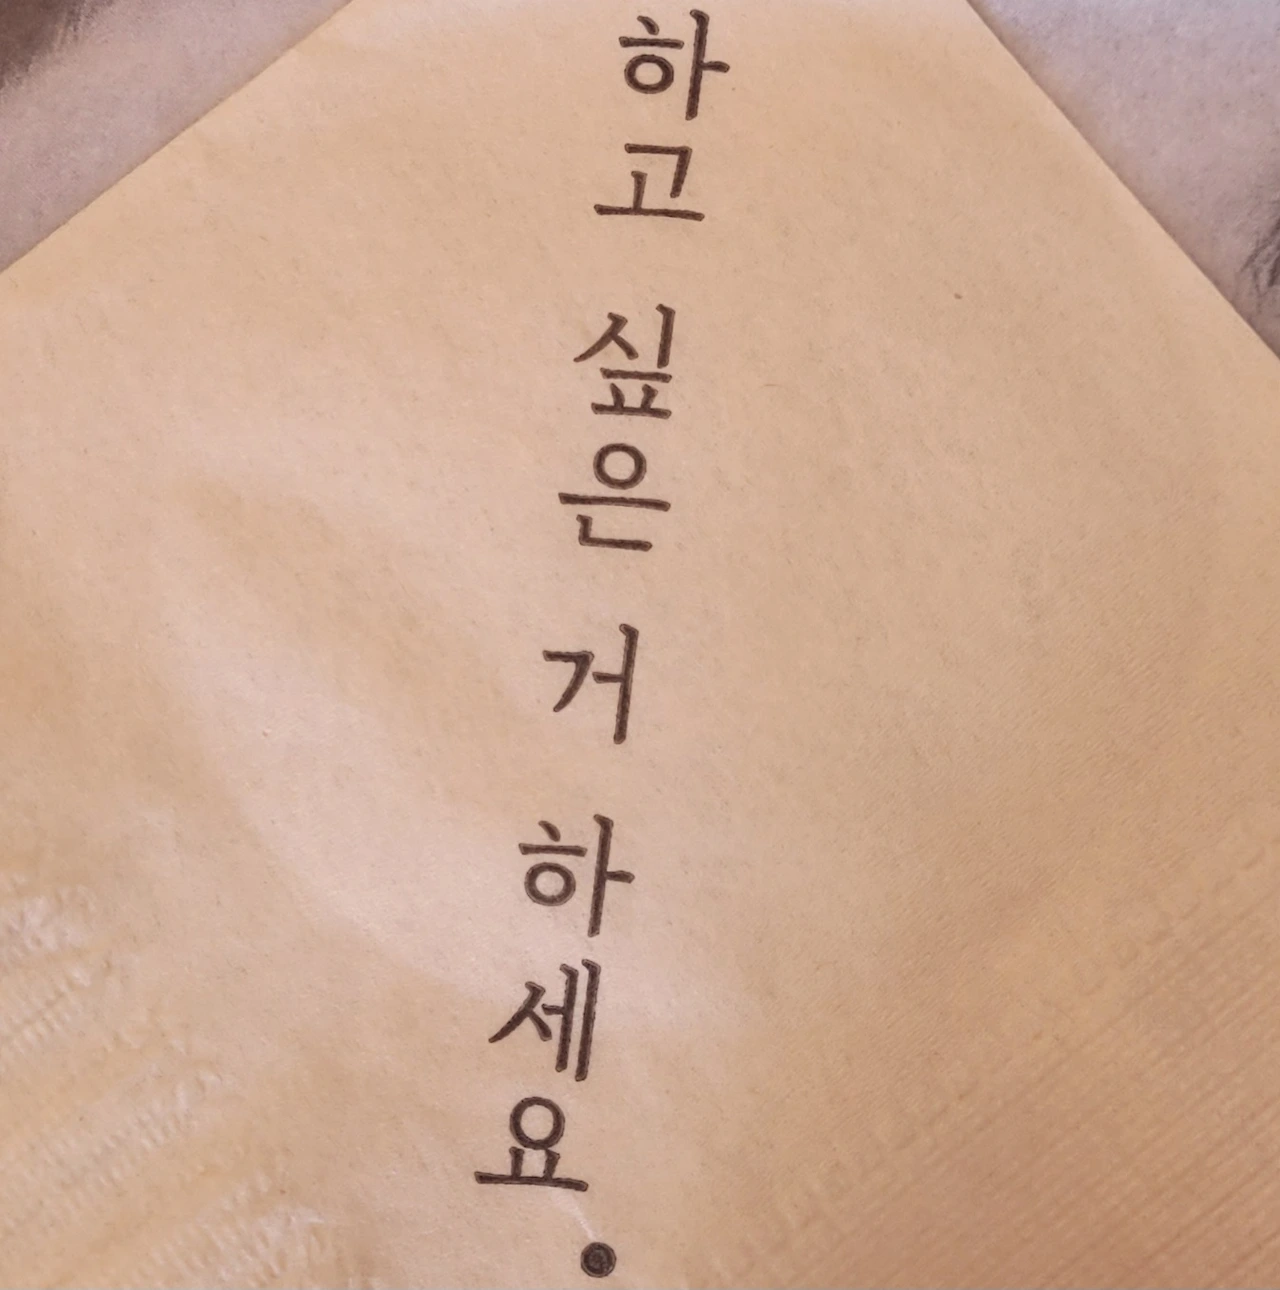 하고 싶은 거 하세요.